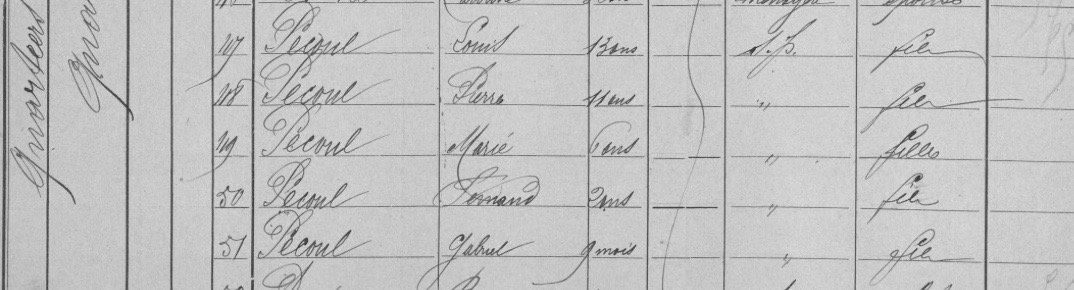 Quartiers
47 Pécoul Louis 13 ans s.p. fils
48 Pécoul Pierre 11 ans " fils
49 Pécoul Marie 6 ans " fille
50 Pécoul Fernand 2 ans " fils
51 Pécoul Gabriel 9 mois " fils